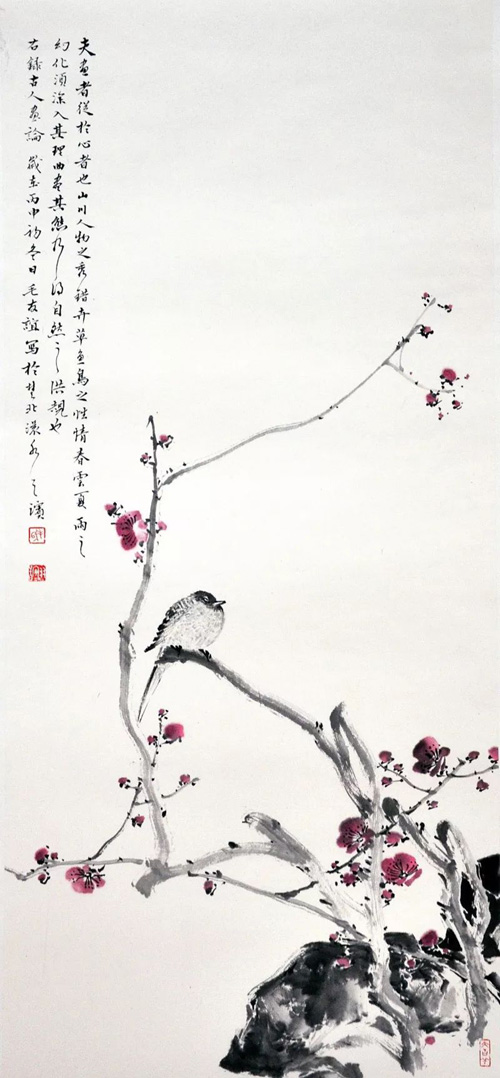 夫畫者從於心者也山川人物之秀錯卉草魚鳥之性情春雲夏雨之
幻化須深入其理曲盡其態乃得自然之洪規也
右錄古人畫論 歲在丙申初冬日毛友誼寫於楚北澴水之濱